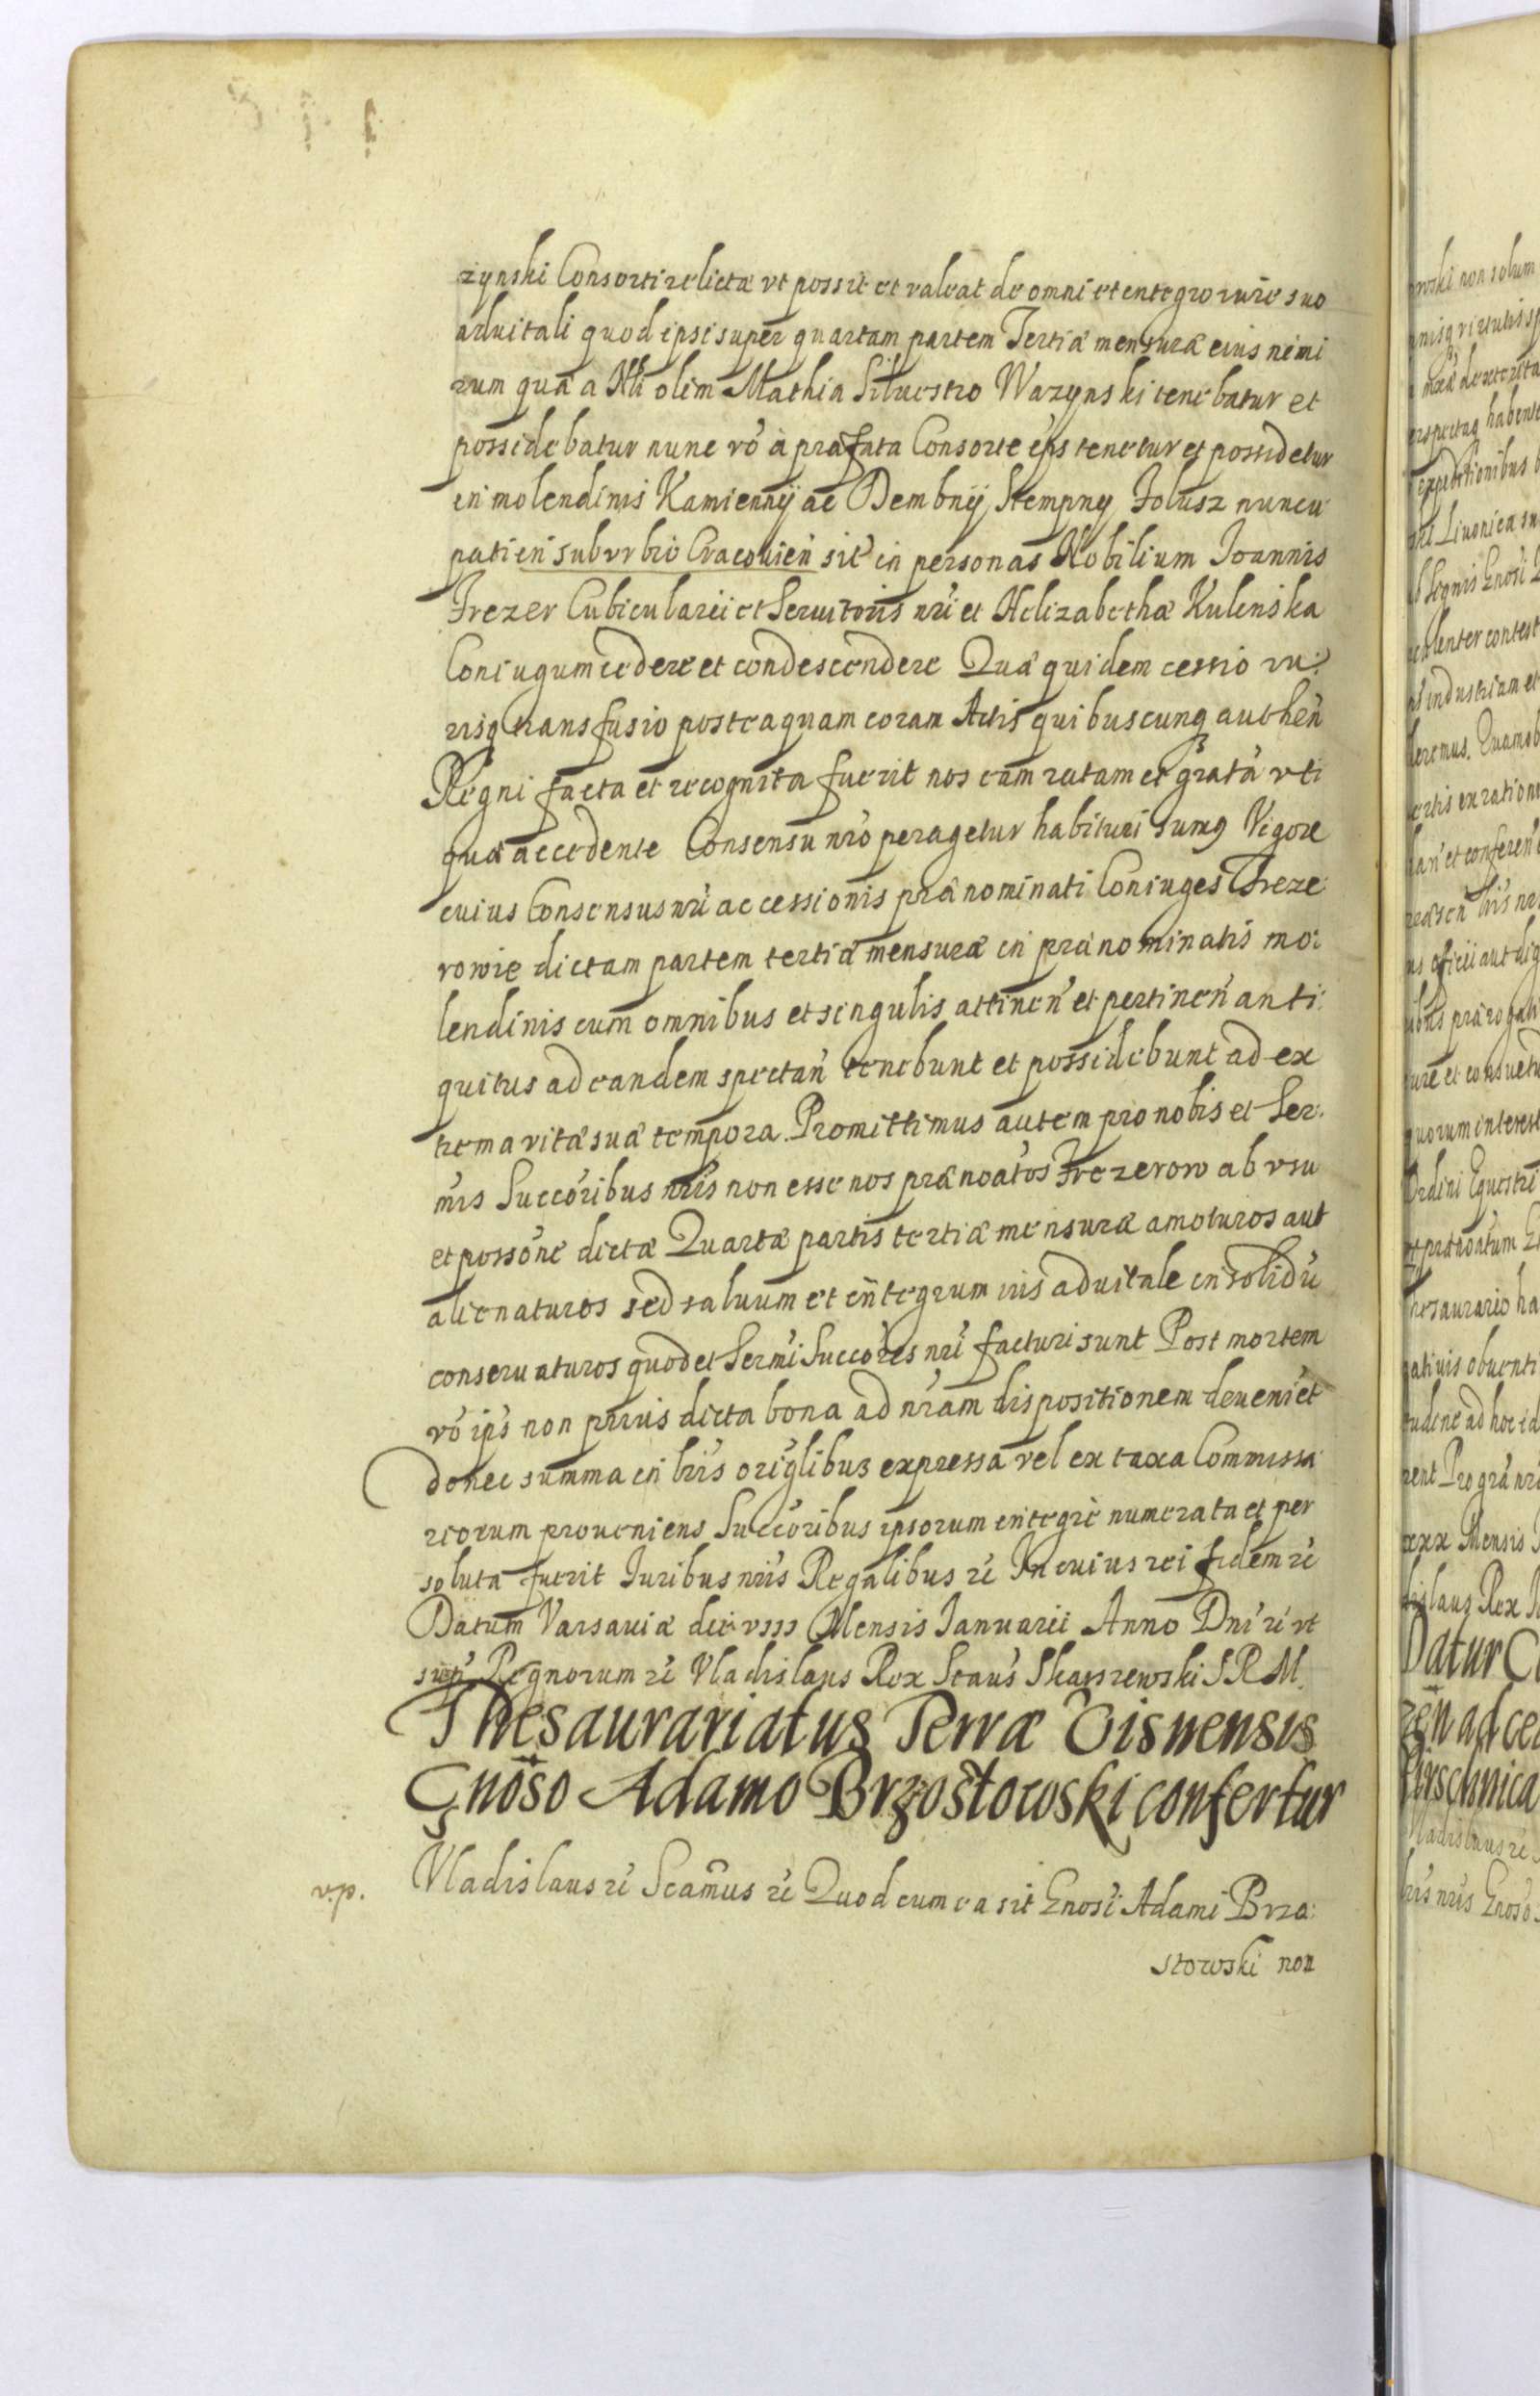 zynski Consorti relictæ vt possit et valeat de omni et integro iure suo
aduitali quod ipsi super quartam partem Tertiæ mensuræ eius nimi
rum quæ a Nli olim Mathia Siluestro Wazynski tenebatur et
possidebatur nunc vo à præfata Consorte eps tenetur et possidetur
in molendinis Kamiennÿ ac Dembnÿ Stempny Folusz nuncu
pati in suburbio Cracouien sit in personas Nobilium Joannis
Frezer Cubicularii et Seruitoris nri et Helizabethæ Kulinska
Coniugum cedere et condescendere Quæ quidem cessio iu:
risq transfusio posteaquam coram Actis quibuscunq authen
Regni facta et recognita fuerit nos eam ratam et gratã vti
quæ accedente Consensu nro peragetur habituri sumq Vigore
cuius Consensus nri ac cessionis prænominati Coniuges Freze
rowie dictam partem tertiæ mensuræ in prænominatis mo:
lendinis cum omnibus et singulis attinen et pertinen anti:
quitus ad eandem spectan tenebunt et possidebunt ad ex
trema vitæ suæ tempora. Promittimus autem pro nobis et Ser:
mis Succoribus nris non esse nos prænoatos Frezerow ab vsu
et possone dictæ Quartæ partis tertiæ mensuræ amoturos aut
alienaturos sed saluum et integrum ius aduitale in solidũ
conseruaturos quod et Sermi Succores nri facturi sunt Post mortem
vo ips non prius dicta bona ad nram dispositionem deueniet
donec summa in lris origlibus expressa vel ex taxa Commissa
riorum proueniens Succoribus ipsorum integre numerata et per
soluta fuerit Juribus nris Regalibus rc In cuius rei fidem rc
Datum Varsauiæ die vııı Mensis Januarii Anno Dni rc vt
sup. Regnorum rc Vladislaus Rex Staus Skarszewski S R M.
Thesaurariatus Terræ Visnensis
Gnoso Adamo Brzostowski confertur
v.p. Vladislaus rc Scamus rc Quod cum ea sit Gnosi Adami Brzo:
stowski non